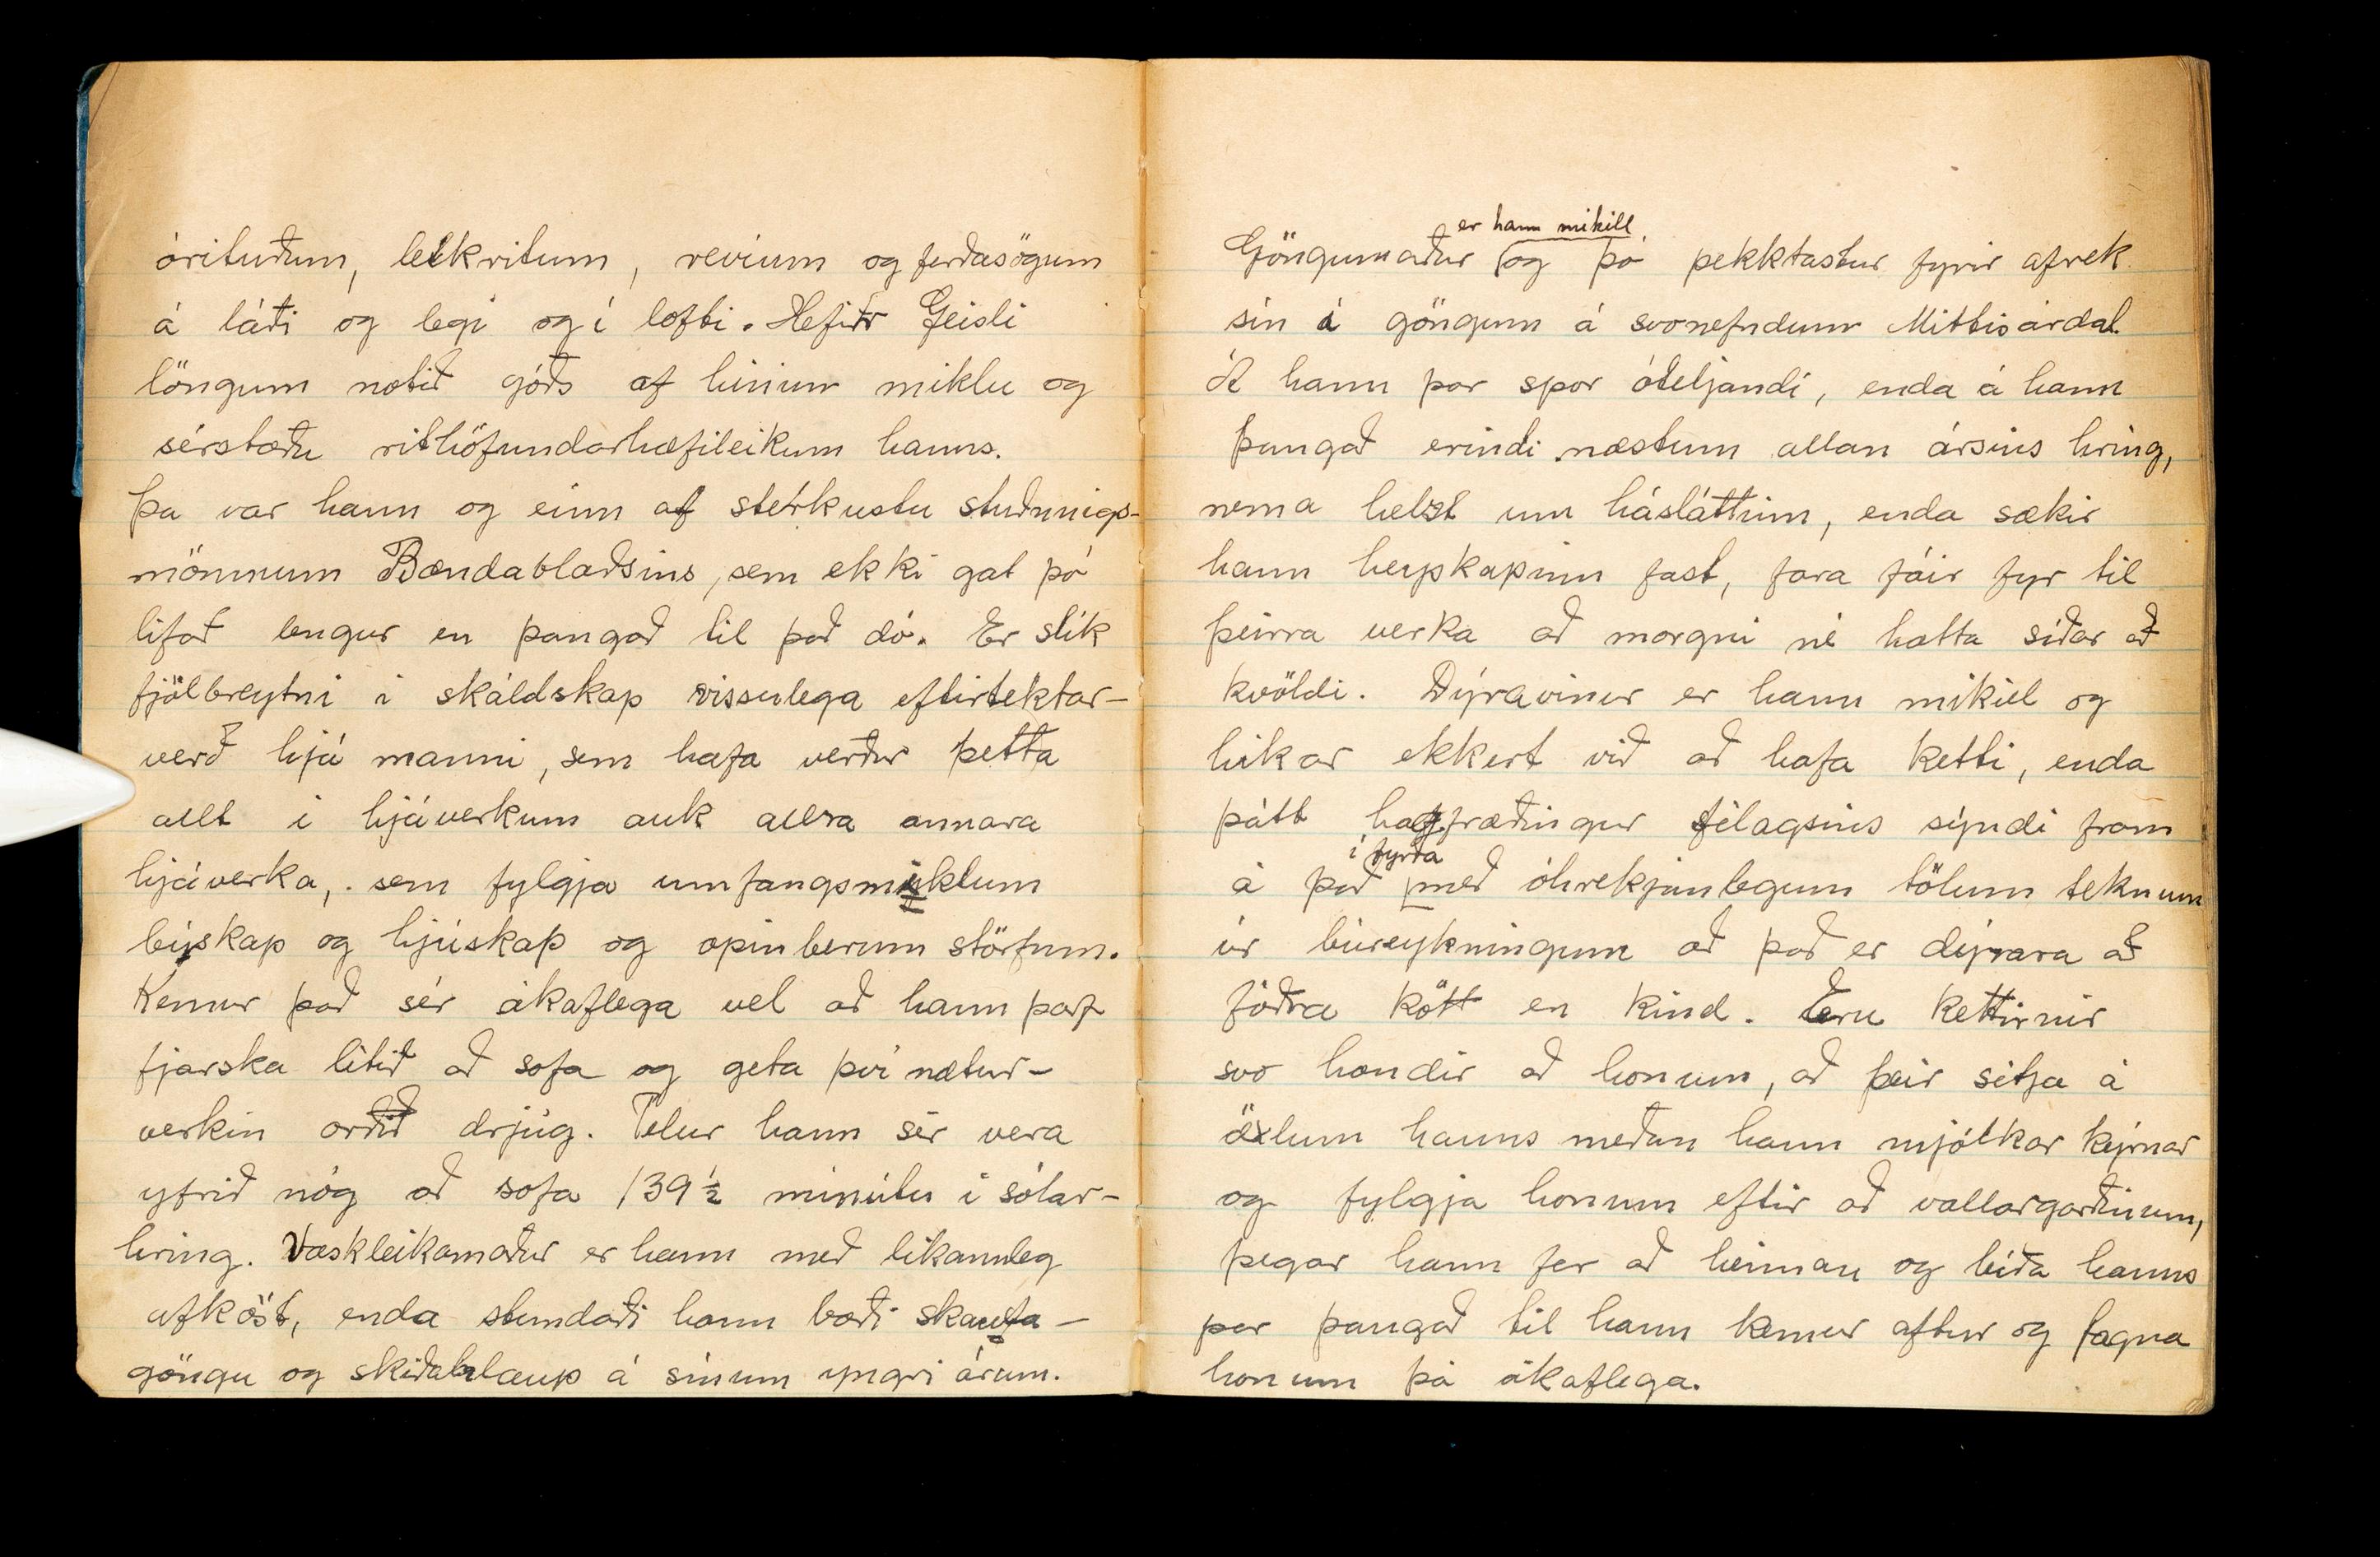 órituðum, leikritum, revíum og ferðasögum
á láði og legi og í lofti. Hefir Geisli
löngum notið góðs af hinum miklu og
sérstæðu rithöfundarhæfileikum hanns.
Þá var hann og einn af sterkustu stuðnings-
mönnum Bændablaðsins, sem ekki gat þó
lifað lengur en þangað til það dó. Er slík
fjölbreytni i skáldskap vissulega eftirtektar-
verð hjá manni, sem hafa verður þetta
allt i hjáverkum auk allra annara
hjáverka, sem fylgja umfangsmiklum
búskap og hjúskap og opinberum störfum.
Kemur það sér ákaflega vel að hann þarf
fjarska lítið að sofa og geta því nætur-
verkin orðið drjúg. Telur hann sér vera
yfrið nóg að sofa 139½ mínútu i sólar-
hring. Vaskleikamaður er hann með líkamleg
afköst, enda stundaði hann bæði skauta-
göngu og skíðahlaup á sínum yngri árum.
Göngumaður er hann mikill og þó þekktastur fyrir afrek
sín á göngum á svonefndum Mittisárdal.
Á hann þar spor óteljandi, enda á hann
þangað erindi næstum allan ársins hring,
nema helzt um hásláttinn, enda sækir
hann heyskapinn fast, fara fáir fyr til
þeirra verka að morgni né hátta síðar að
kvöldi. Dýravinur er hann mikill og
hikar ekkert við að hafa ketti, enda
þátt hagfræðingur félagsins sýndi fram
á það í fyrra með óhrekjanlegum tölum teknum
úr búreykningum að það er dýrara að
fóðra kött en kind. Eru kettirnir
svo hændir að honum, að þeir sitja á
öxlum hanns meðan hann mjólkar kýrnar
og fylgja honum eftir að vallargarðinum,
þegar hann fer að heiman og bíða hanns
þar þangað til hann kemur aftur og fagna
honum þá ákaflega.